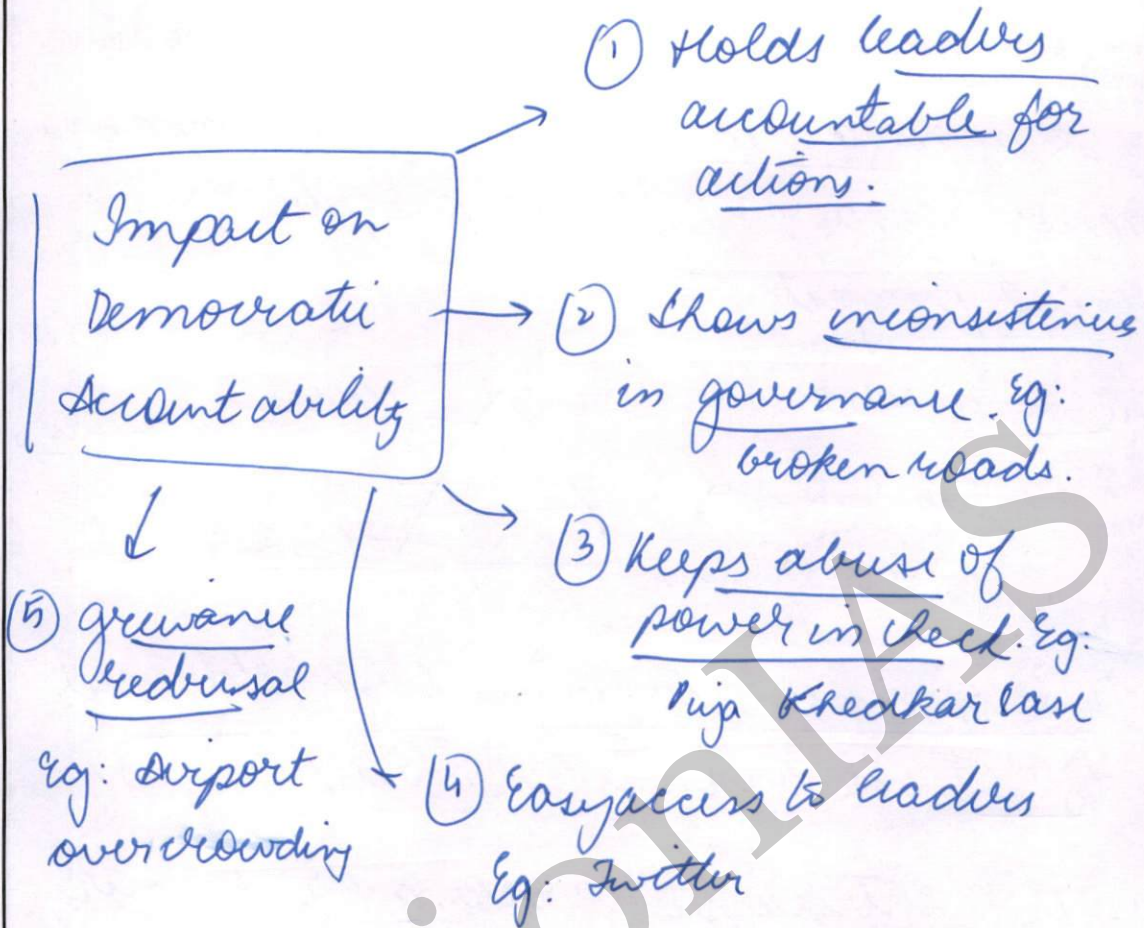 Impact on
Democratic
Accountability
① Holds leaders
accountable for
actions.
② Shows inconsistencies
in governance. Eg:
broken roads.
③ Keeps abuse of
power in check. Eg:
Puja Khedkar Case
④ Easy access to leaders
Eg: Twitter
⑤ grievance
redressal
Eg: Airport
overcrowding
onIAS